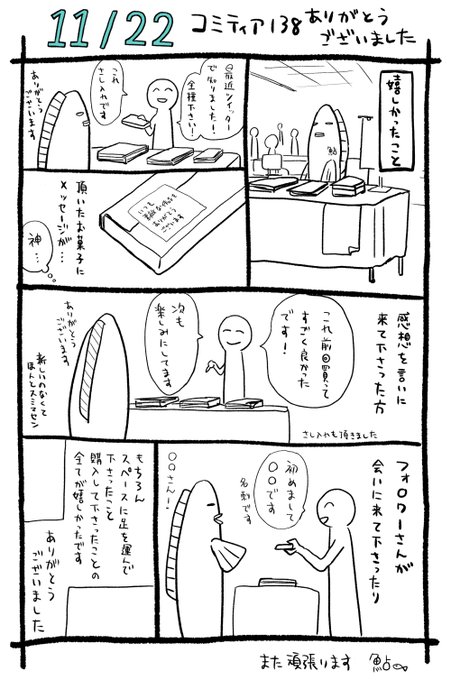 11/22 コミティア138 ありがとう
ございました
嬉しかったこと
最近ツイッター
で知りました!
全種下さい!
これ
さし入れです
ありがとう
ございます
頂いたお菓子に
メッセージが…
いつも
素敵な作品を
ありがとう
ございます
神…
感想を言いに
来て下さった方
これ前回買って
すごく良かった
です!
次も
楽しみにしてます
ありがとう
ございます
新しいのなくて
ほんとスミマセン
さし入れも頂きました
フォロワーさんが
会いに来て下さったり
初めまして
〇〇です
名刺です
〇〇さんー!
もちろん
スペースに足を運んで
下さったこと
購入して下さったことの
全てが嬉しかったです
ありがとう
ございました
また頑張ります 鮎